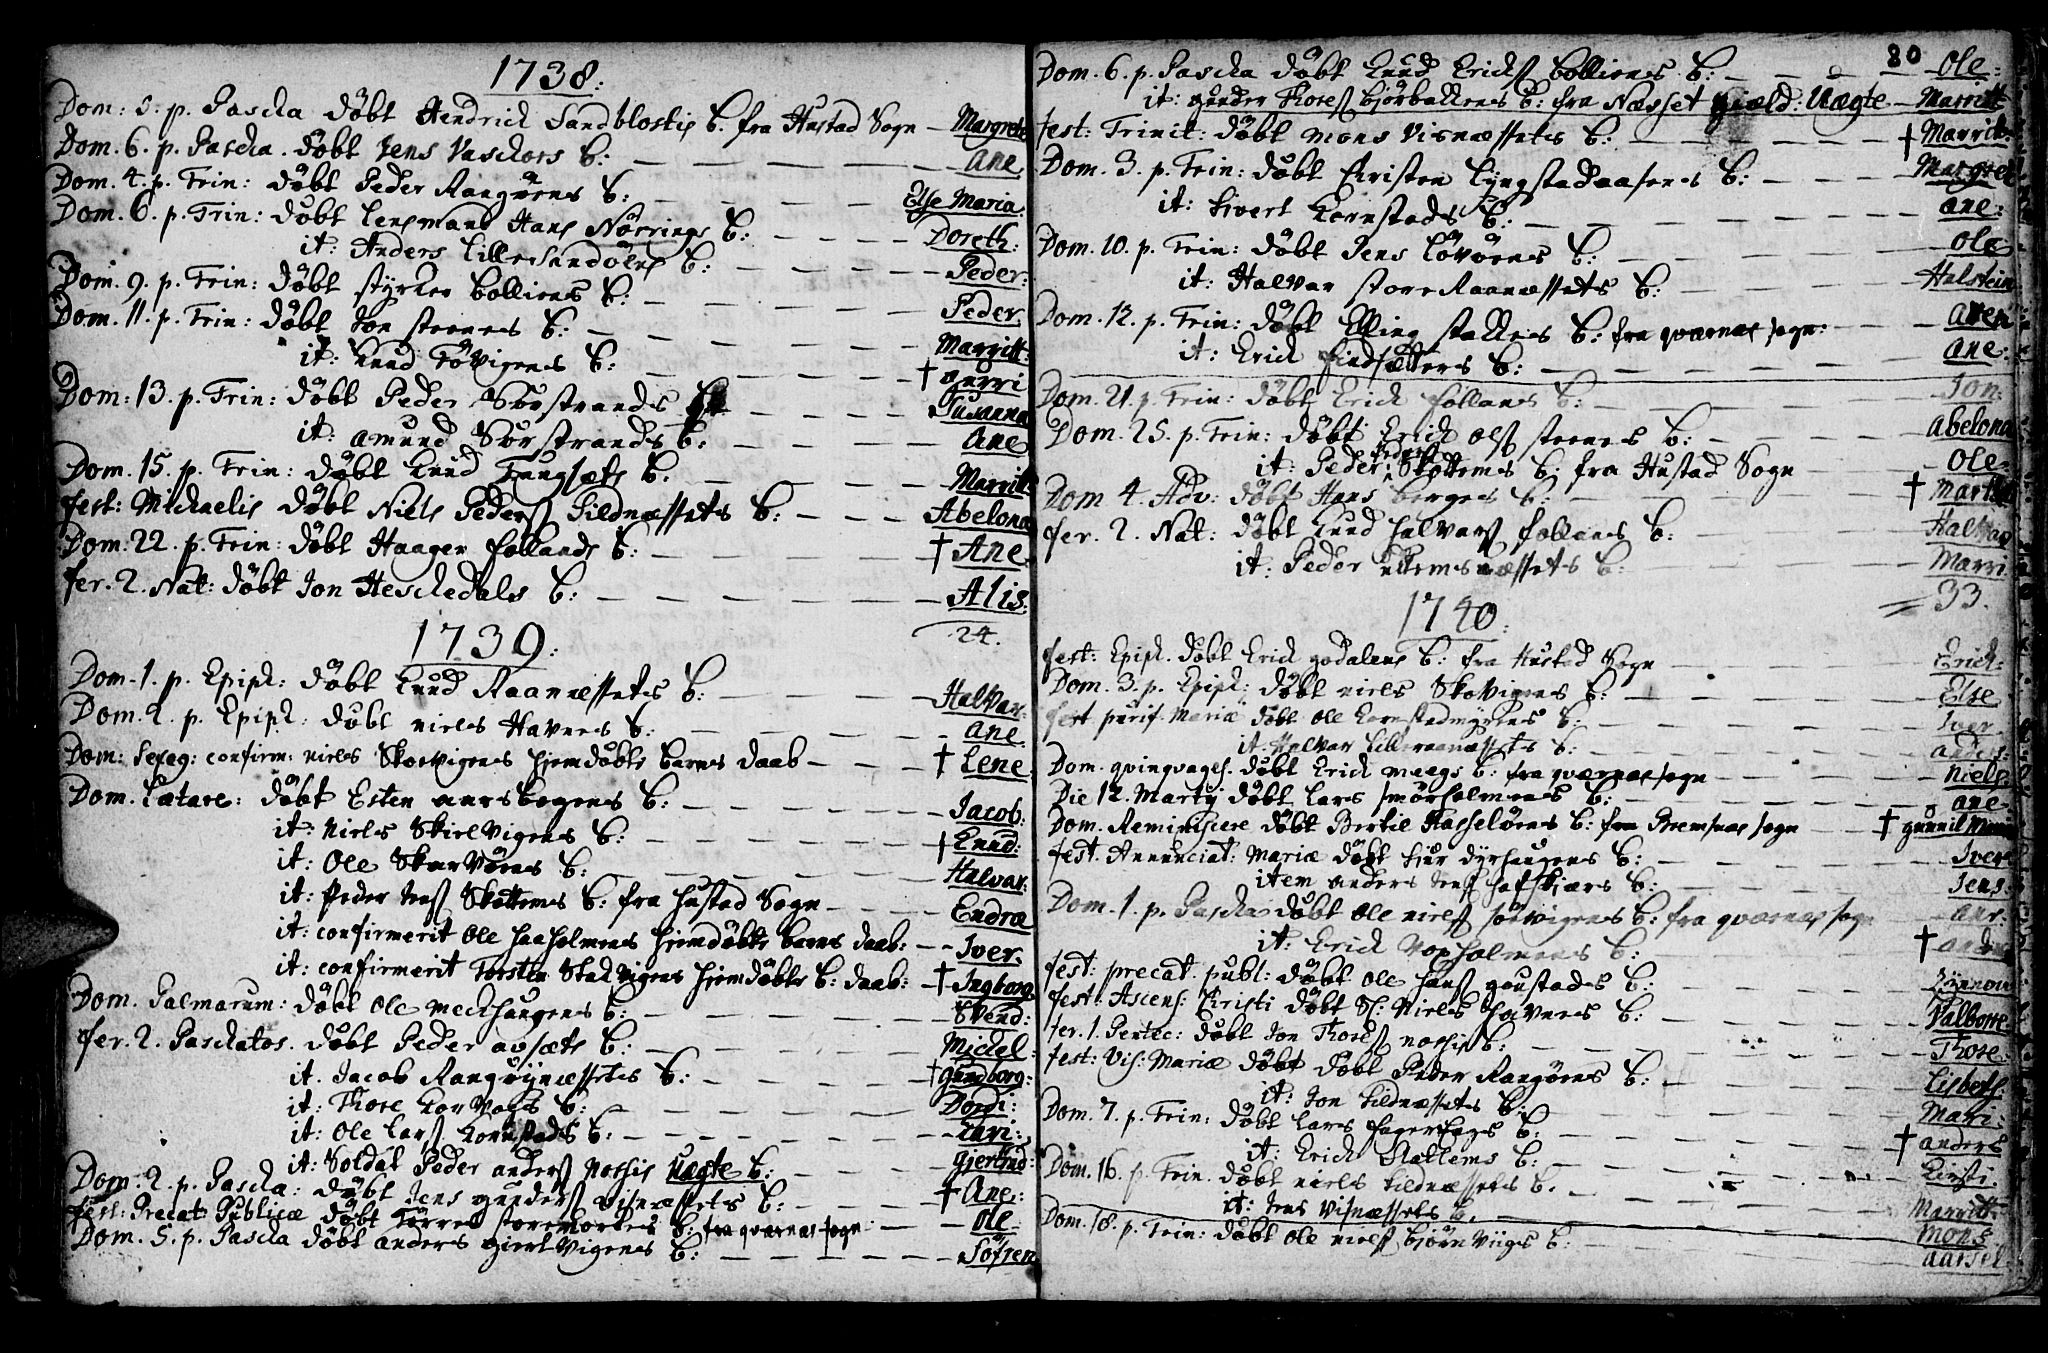 1738:
Dom: 5. p. Pascha döbt Hendrich Sandblostis B. fra Hustad Sogn – Margrete
Dom. 6. p. Pascha. döbt Jens Vaschors B: – Ane
Dom. 4. p. Trin: döbt Peder Rangöens B: – Else Maria.
Dom. 6. p. Trin: döbt Lensmand Hans Nörrings B: – Doreth:
it: Anders Lille Sandöens B: – Peder:
Dom. 9. p. Trin: döbt styrker bolliens B: – Peder.
Dom. 11. p. Trin: döbt Jon steenes B: – Marritt:
it: Knud Tövigens B: – † gurri
Dom: 13. p. Trin: döbt Peder Sörstrands B: – Susanna
it: amund Sörstrands B: – Ane
Dom. 15. p. Trin: döbt Knud Tungsæts B. – Marritt
fest: Michaelis döbt Niels Peders Tildnæssets B: – Abelona
Dom: 22. p. Trin: döbt Haager follands B: – † Ane
fer. 2. Nat: döbt Jon Heschedals B: – Alis.
24.
1739:
Dom. 1. p. Epiph: döbt Knud Raanæssets B: – Halvar:
Dom. 2. p. Epiph: döbt niels Havnes B: – Ane.
Dom: Sexag: confirm: niels Skotvigens hjemdöbte barns daab – † Lene
Dom. Lætare: döbt Esten aarsbogens B: – Jacob:
it: niels Skielvigens B: – † Knud:
it: Ole Skarvöens B: – Halvar:
it: Peder Jens Skottems B: fra Hustad Sogn – Endræ
it: confirmerit Ole haaholmens hjemdöbte barns daab: – Iver.
it: confirmerit Torsten Stadvigens hjemdöbte B: daab: – † Ingborg
Dom. Palmarum: döbt Ole meekhaugens B: – Svend:
fer. 2. Paschatos. döbt Peder avsæts B: – Michel:
it. Jacob Rangöynæssets B: – † gundborg:
it: Thore Korvogs B: – Dordi:
it: Ole Lars Kornstads B: – Kari:
it: Soldat Peder anders nossis Uægte B: – Gjertrud:
Dom. 2. p. Pascha: döbt Jens gunders visnæssets B: – † Ane:
fest: Precat: Publicæ döbt Törres storemorteus B: fra qværnæs sogn: – Ole
Dom. 5. p. Pascha döbt anders gjertvigens B: – Söfren
80
Dom. 6. p. Pascha döbt Knud Ericks bolliens B: – Ole:
it: gunder Thores björbakkens B: fra Næsset giæld: Uægte – Marritt
fest: Trinit: döbt mons Visnæssets B: – † Marrit:
Dom. 3. p. Trin: döbt Christen Lyngstadaasens B: – Margret
it: Sivert Kornstads B: – ane:
Dom. 10. p. Trin: döbt Jens Lövöens B: – Ole
it: Halvar store Raanæssets B: – Halstein
Dom. 12. p. Trin: döbt Elling stakkes B: fra qværnæs sogn: – Aren
it: Erich findsætters B: – ane:
Dom. 21. p. Trin: döbt Erich follans B: – Jon:
Dom. 25. p. Trin: döbt Erich Ols steenes B: – Abelona
it: Peder Peders Skottems B: fra Hustad Sogn – Ole
Dom 4. Adv: döbt Hans bergens B: – † Martha
fer. 2. Nat: döbt Knud halvars follans B: – Halvar
it: Peder uttemsnæssets B: – Marri.
33.
1740:
fest: Epiph. döbt Erich godalens B: fra Hustad Sogn – Erich:
Dom. 3. p. Epiph: döbt niels Skotvigens B: – Else
fest purif. Mariæ döbt Ole Kornstadmyrens B: – Iver
it. Halvar Lilleraanæssets B: – anders:
Dom. qvinqvages. döbt Erich maags B: fra qværnæs sogn – Niels
Die 12. Martij döbt Lars smörholmens B: – ane
Dom. Reminiscere döbt Bertil Hasselöens B: fra Bremsnæs sogn – † gunnil Maria
fest. Annunciat: Mariæ döbt Siur dyrhaugens B: – Iver
item anders Jens hafskjærs B: – Jens.
Dom. 1. p. Pascha döbt Ole niels sörvigens B: fra qværnæs sogn – ane.
it: Erich Voxholmens B: –
fest: precat. publ: döbt Ole hans goustads B: – Synnou
fest: Ascens: Christi döbt Sl: Niels havnes B: – Valborre
fer. 1. Pentec: döbt Jon Thores nossis B: – Thore:
fest: Vis: Mariæ döbt döbt Peder Rangöens B: – Lisbeth:
it: Jon Tildnæssets B: – Mari:
Dom. 7. p. Trin: döbt Lars fagerhogs B: – † anders
it: Erich Slattems B: – Kirsti.
Dom. 16. p. Trin. döbt niels Tildnæssets B. – Marritt:
it: Jens Visnæssets B. – Mons
Dom. 18. p. Trin: döbt Ole niels björnviigs B: – Aarsel